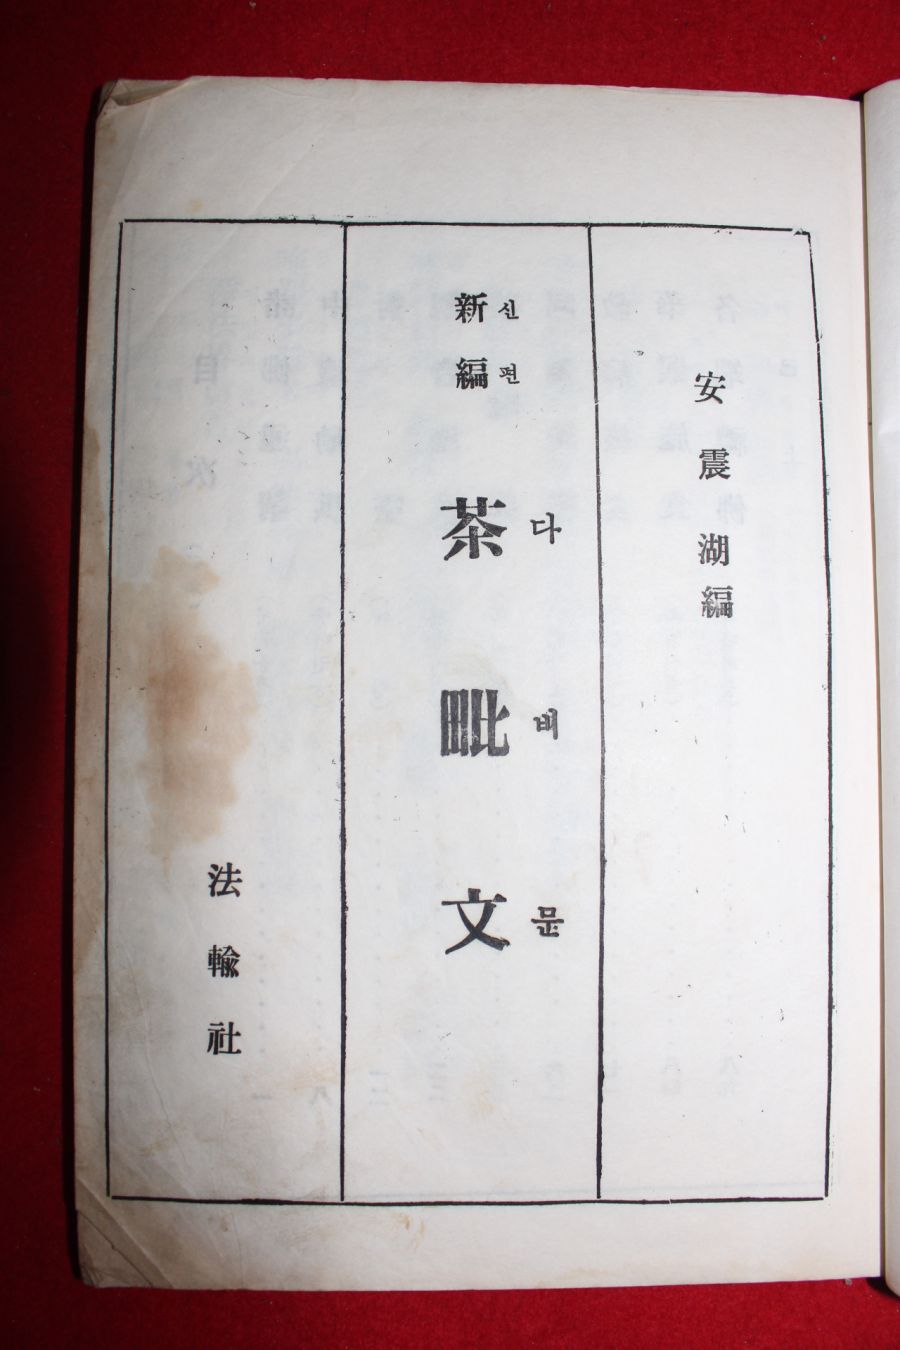 安震湖編
新編 茶毗文
신편 다비문
法輸社